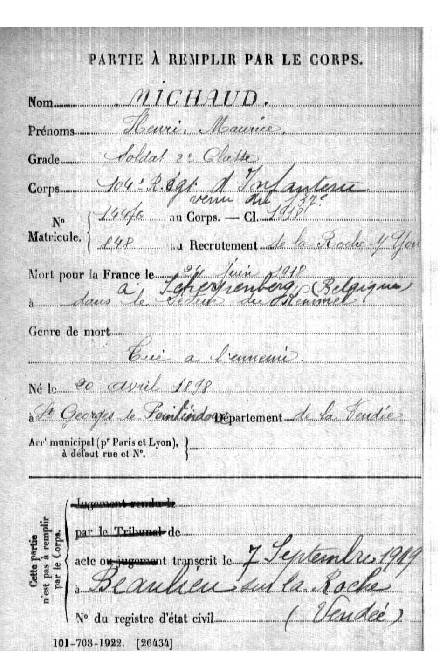 PARTIE À REMPLIR PAR LE CORPS.
Nom MICHAUD.
Prénoms Henri Maurice.
Grade Soldat 2e Classe
Corps 104e Régt d'Infanterie
venu du 137e
No au Corps. — Cl. 1918
Matricule. 848 au Recrutement de la Roche s/Yon
Mort pour la France le 24 Juin 1918
à Scherpenberg (Belgique)
à dans le du Kemmel
Genre de mort
Tué à l'ennemi
Né le 20 avril 1898
à St Georges de Pointindoux Département de la Vendée
Arrt municipal (pr Paris et Lyon),
à défaut rue et No.
Cette partie
n'est pas à remplir
par le Corps.
Jugement rendu le
par le Tribunal de
acte ou jugement transcrit le 7 Septembre 1919
à Beaulieu sur la Roche
No du registre d'état civil (Vendée)
101-708-1922. [26434]